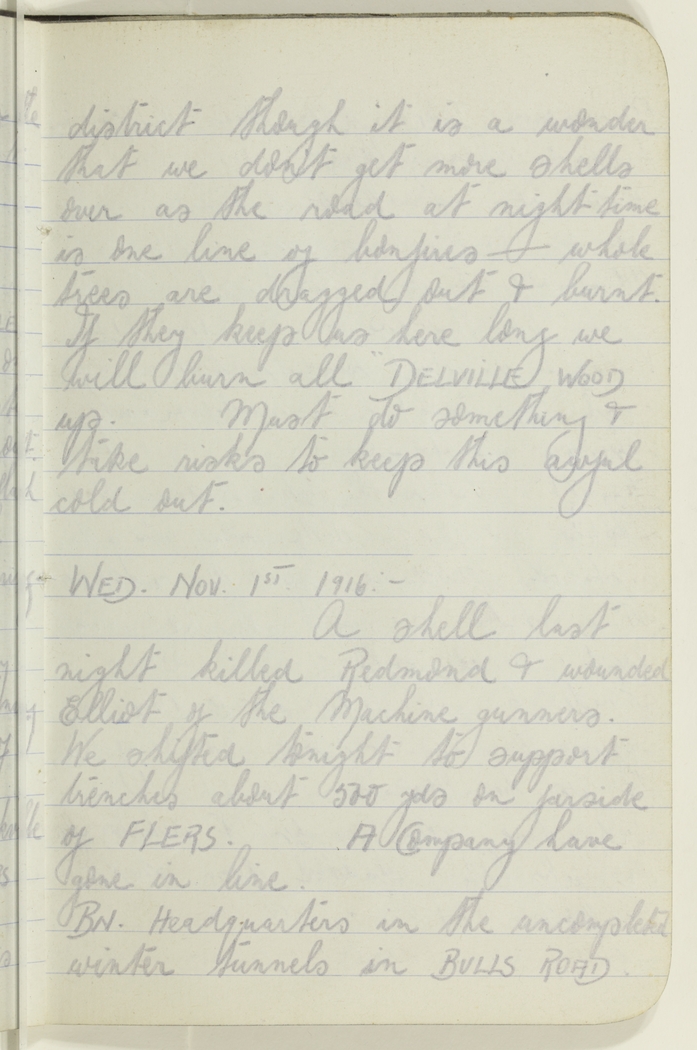 district though it is a wonder
that we don't get more shells
over as the road at night time
is one line of bonfires - whole
trees are dragged out & burnt.
If they keep us here long we
will burn all "DELVILLE WOOD
up. Must do something &
take risks to keep this awful
cold out.
WED. NOV. 1ST 1916:-
A shell last
night killed Redmond & wounded
Elliot of the Machine gunners.
We shifted tonight to support
trenches about 500 yds on farside
of FLERS. A Company have
gone in line.
BN. Headquarters in the uncompleted
winter tunnels in BULLS ROAD.